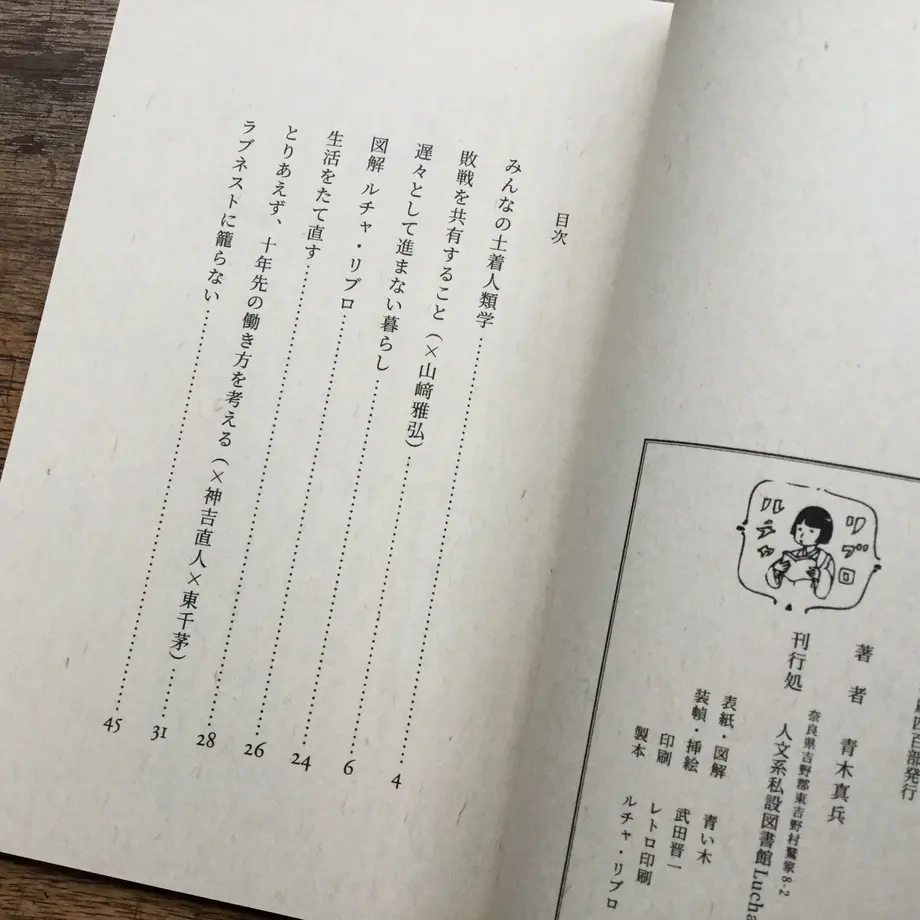 四百部発行
著者 青木真兵
奈良県吉野郡東吉野村鷲家8-2
刊行処 人文系私設図書館Lucha
表紙・図解 青い木
装幀・挿絵 武田晋一
印刷 レトロ印刷
製本 ルチャ・リブロ
ルチャ
リブロ
目次
みんなの土着人類学……4
敗戦を共有すること(×山﨑雅弘)……6
遅々として進まない暮らし……24
図解 ルチャ・リブロ……26
生活をたて直す……28
とりあえず、十年先の働き方を考える(×神吉直人×東千茅)……31
ラブネストに籠らない……45